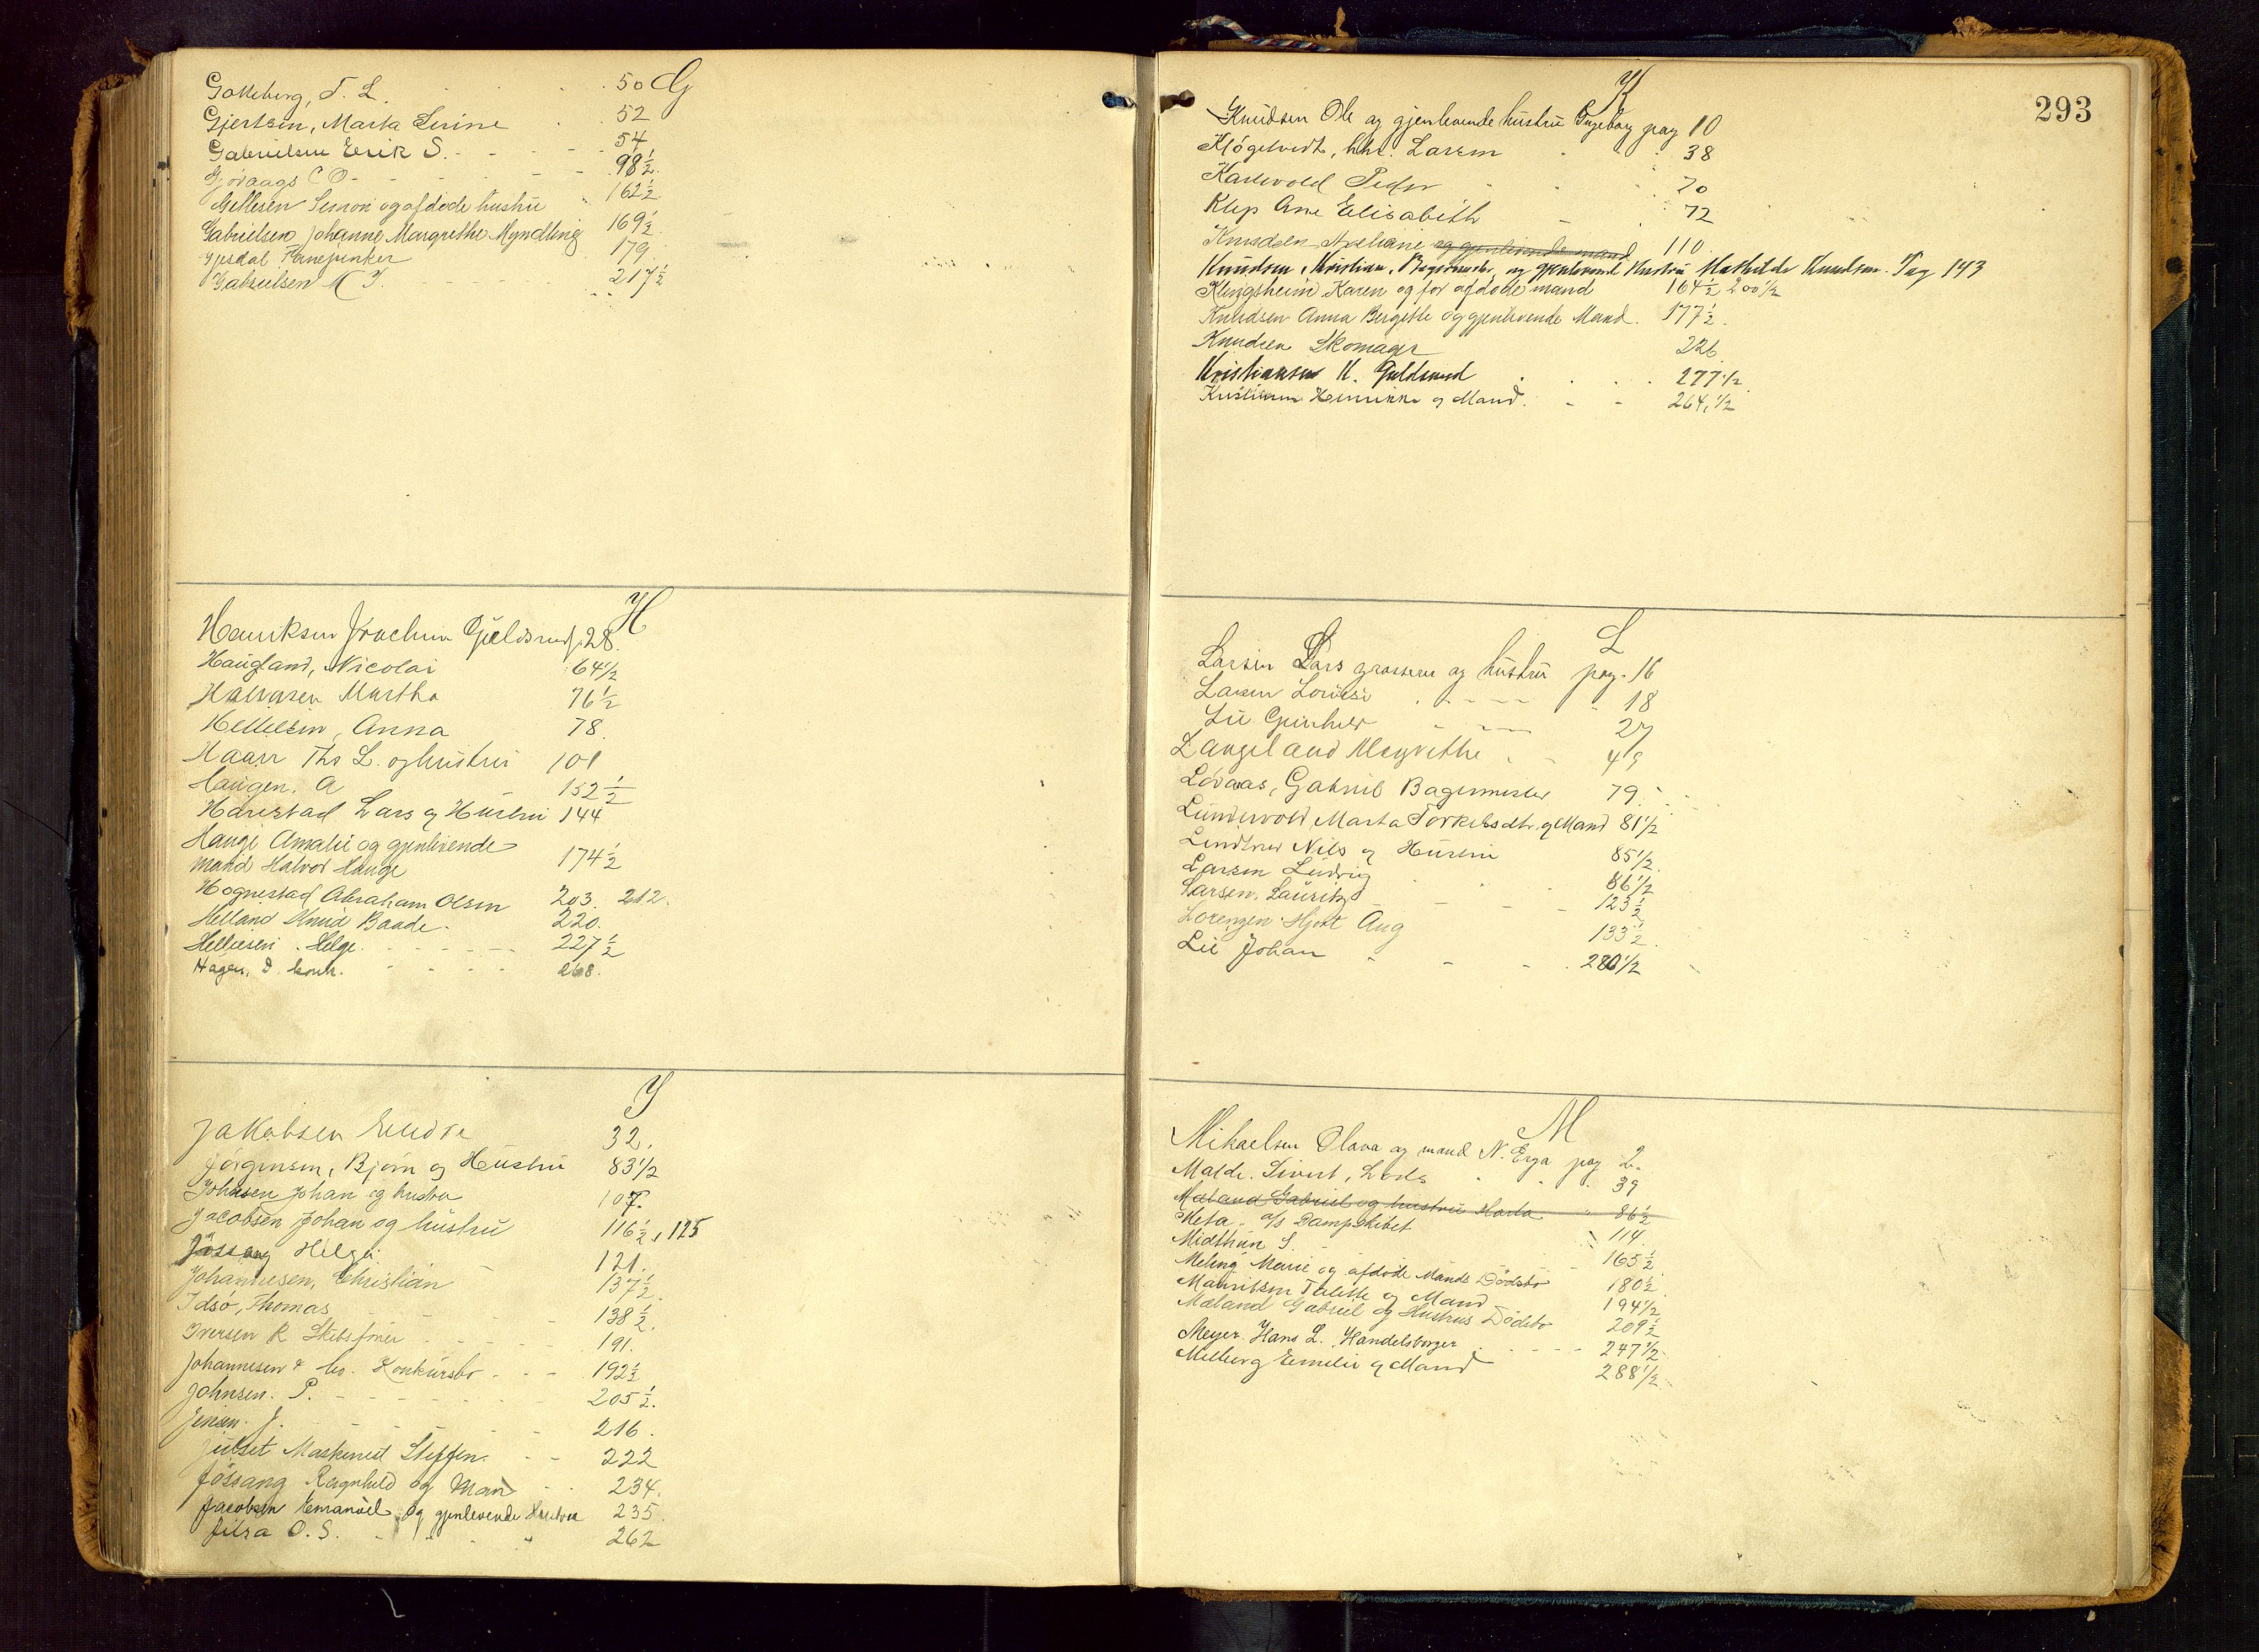 G
Gjertsen, Marta Serine 52
50
Gabrielsen Erik S. 54
C O 98 1/2
Simon og afdøde hustru 162 1/2
Gabrielsen Johanne Margrethe Myndling 169 1/2
Gjesdal 179
Gabrielsen M 217 1/2
H
Henriksen Joachim 28.
Haugland, Nicolai 64 1/2
Halvorsen Martha 76 1/2
Helliesen, Anna 78.
Haarr Ths L. og hustru 101
Haugen. A 152 1/2
Harestad Lars og Hustru 144
Hauge Amalie og gjenlevende
mand Halvor Hauge 174 1/2
Hognestad Abraham Olsen 203. 212.
Helland Knud Baade. 220.
Helliesen. Helge. 227 1/2
Hagen. & 268.
J
Jakobsen Endre 32.
Jørgensen, Bjørn og Hustru 83 1/2
Johan og hustru 107.
Jacobsen Johan og hustru 116 1/2, 125
Jøssang Helge 121.
Johannesen, Christian 137 1/2
Idsø, Thomas 138 1/2.
Iversen R Skibsfører 191.
Johannesen & Co. Konkursbo 192 1/2
Johnsen. P. 205 1/2.
Jensen. J. 216.
Maskinist Steffen. 222
Jøssang Ragnhild og Mand 234.
Jacobsen Emanuel og gjenlevende Hustru 235.
O. S. 262
293
K
Knudsen Ole og gjenlevende hustru Ingeborg pag 10
Larsen 38
Karlvold Peder 70
Klep Ane Elisabeth 72
Knudsen og gjenlevende mand 110.
Knudsen, Kristian, Bagermester, og gjenlevende Hustru Mathilde Knudsen. Pag 143
Klingsheim Karen og for afdøde mand 164 1/2 200 1/2
Knudsen Anna Bergitte og gjenlevende Mand. 177 1/2.
Knudsen Skomager 226.
Kristiansen K. Guldsmed 277 1/2.
Henrikke og Mand. 264, 1/2
L
Larsen Lars grosserer og hustru pag. 16
Larsen Lovise 18
Lie Gunhild 27
Langeland Margrethe 49
Løvaas, Gabriel Bagermester 79.
Lundervold, Marta Torkelsdtr. og Mand 81 1/2
Lindtner Nils og Hustru 85 1/2
Larsen Ludvig 86 1/2
Larsen. Lauritz 123 1/2
Lorenzen Hjort Aug 133 1/2.
Lie Johan 280 1/2
M
Mikaelsen Olava og mand N. Erga pag 2.
Malde. Sivert, Lods 39
Mæland Gabriel og hustru Marta 86 1/2
Meta. a/s Dampskibet 114.
Midthun S. 165 1/2
Meling Marie og afdøde Mands Dødsbo 180 1/2.
Mauritsen Talette og Mand 194 1/2
Mæland Gabriel og Hustrus Dødsbo 209 1/2
Meyer. Hans L. Handelsborger 247 1/2
Melberg Emilie og Mand 288 1/2.